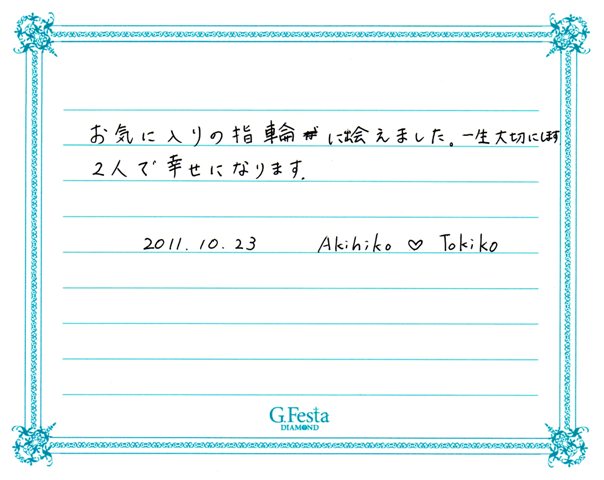 お気に入りの指輪に出会えました。一生大切にします
2人で幸せになります.
2011.10.23 Akihiko ♡ Tokiko
G.Festa
DIAMOND